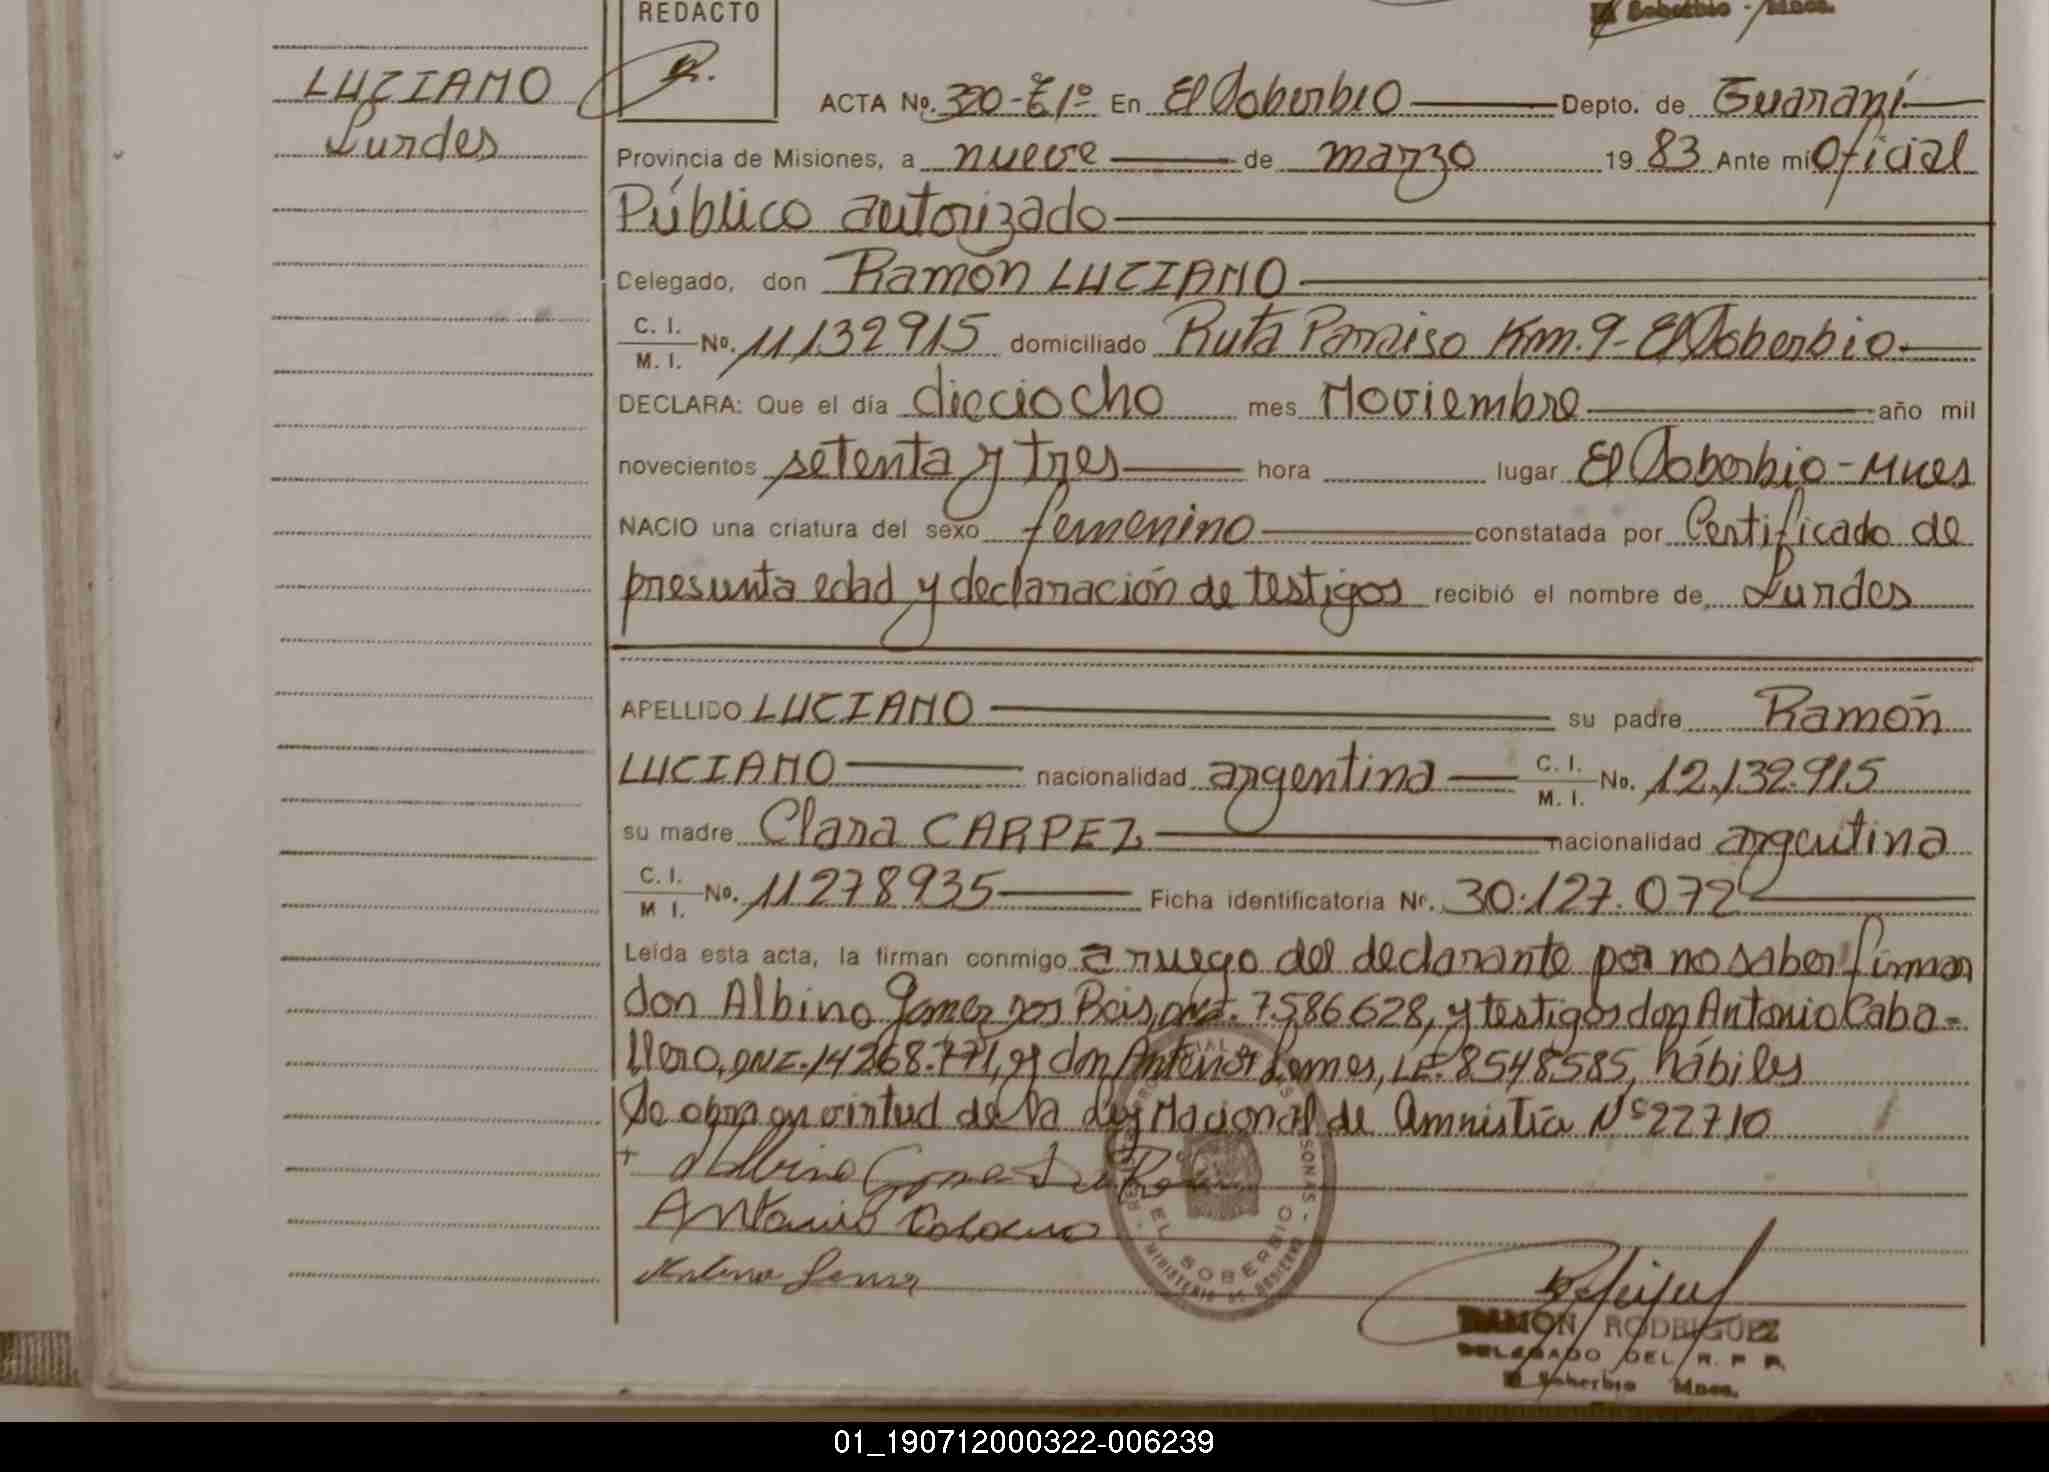 REDACTO
El Soberbio - Mnes.
LUCIANO
Lurdes
ACTA No. 320-Tº1º En El Soberbio Depto. de Guaraní
Provincia de Misiones, a nueve de marzo 19 83 Ante mi Oficial
Público autorizado
Celegado, don Ramón LUCIANO
C. I.
M. I. No. 11132915 domiciliado Ruta Paraiso Km. 9- El Soberbio
DECLARA: Que el día dieciocho mes Noviembre año mil
novecientos setenta y tres hora lugar El Soberbio - Mnes
NACIO una criatura del sexo femenino constatada por Certificado de
presunta edad y declaración de testigos recibió el nombre de Lurdes
APELLIDO LUCIANO su padre Ramón
LUCIANO nacionalidad argentina C. I. M. I. No. 12.132.915
su madre Clara CARPEZ nacionalidad argentina
C. I.
M I. No. 11278935 Ficha identificatoria Nr. 30.127.072
Leída esta acta, la firman conmigo a ruego del declarante por no saber firmar
don Albino Gomez dos Reis, DNI. 7586628, y testigos don Antonio Caba-
llero, DNI. 14268.771, y don Antenor Lemes, LE. 8548585, hábiles
Se obra en virtud de la Ley Nacional de Amnistía Nº 22710
Albino
Antonio
EL SOBERBIO
MINISTERIO DE GOBIERNO
RAMON RODRIGUEZ
DELEGADO DEL R. P. P.
El Soberbio Mnes.
01_190712000322-006239